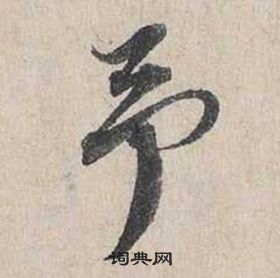 予
词典网